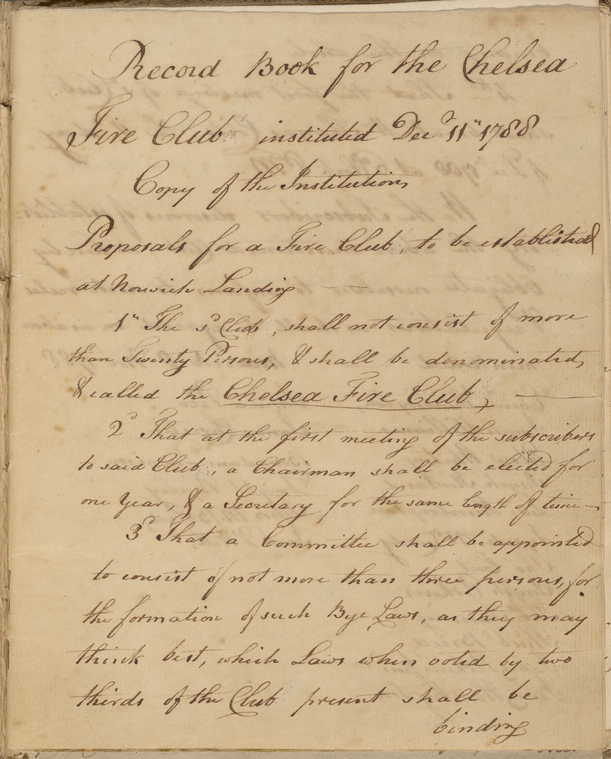 Record Book for the Chelsea
Fire Club instituted Decr 11th 1788
Copy of the Institution
Proposals for a Fire Club, to be established
at Norwich Landing
1st The sd Club, shall not consist of more
than Twenty Persons, & shall be denominated,
& called the Chelsea Fire Club,
2d That at the first meeting of the subscribers
to said Club, a Chairman shall be elected for
one Year, & a Secretary for the same length of time
3d That a Committee shall be appointed
to consist of not more than three persons, for
the formation of such Bye Laws, as they may
think best, which Laws when voted by two
thirds of the Club present shall be
binding